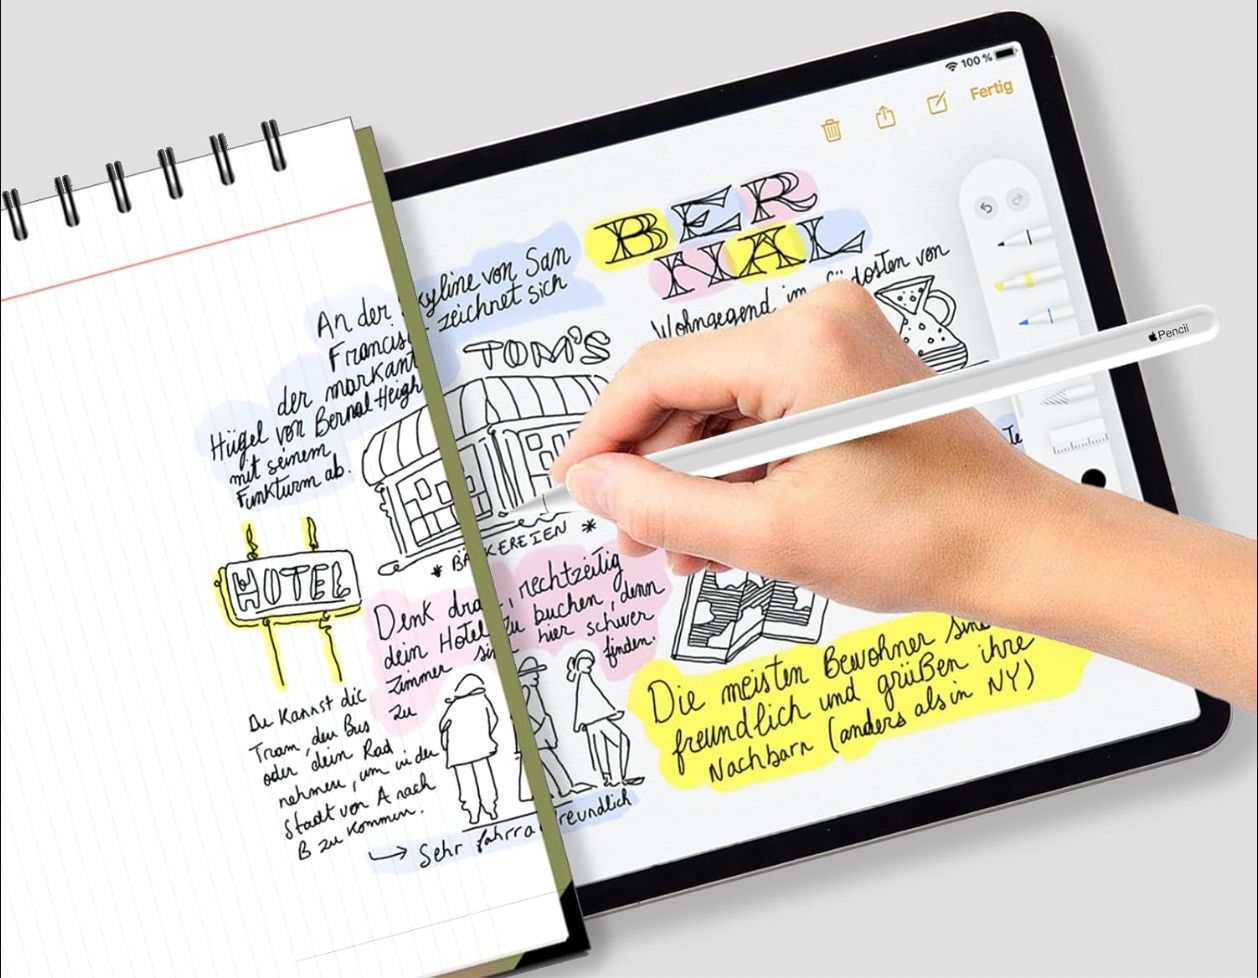 100 %
Fertig
BER
NAL
Wohngegend im
von
An der Skyline von San
zeichnet sich
der
Hügel von Bernal Heigh
mit seinem
Funkturm ab.
TOM'S
* BÄCKEREIEN *
HOTEL
Denk dra, rechtzeitig
dein Hotel zu buchen, denn
Zimmer sin hier schwer
zu finden.
Du kannst die
Tram, den Bus
oder dein Rad
nehmen, um in der
Stadt von A nach
B zu kommen.
→ Sehr fahrra freundlich
Die meisten Bewohner
freundlich und grüßen ihre
Nachbarn (anders als in NY)
Pencil